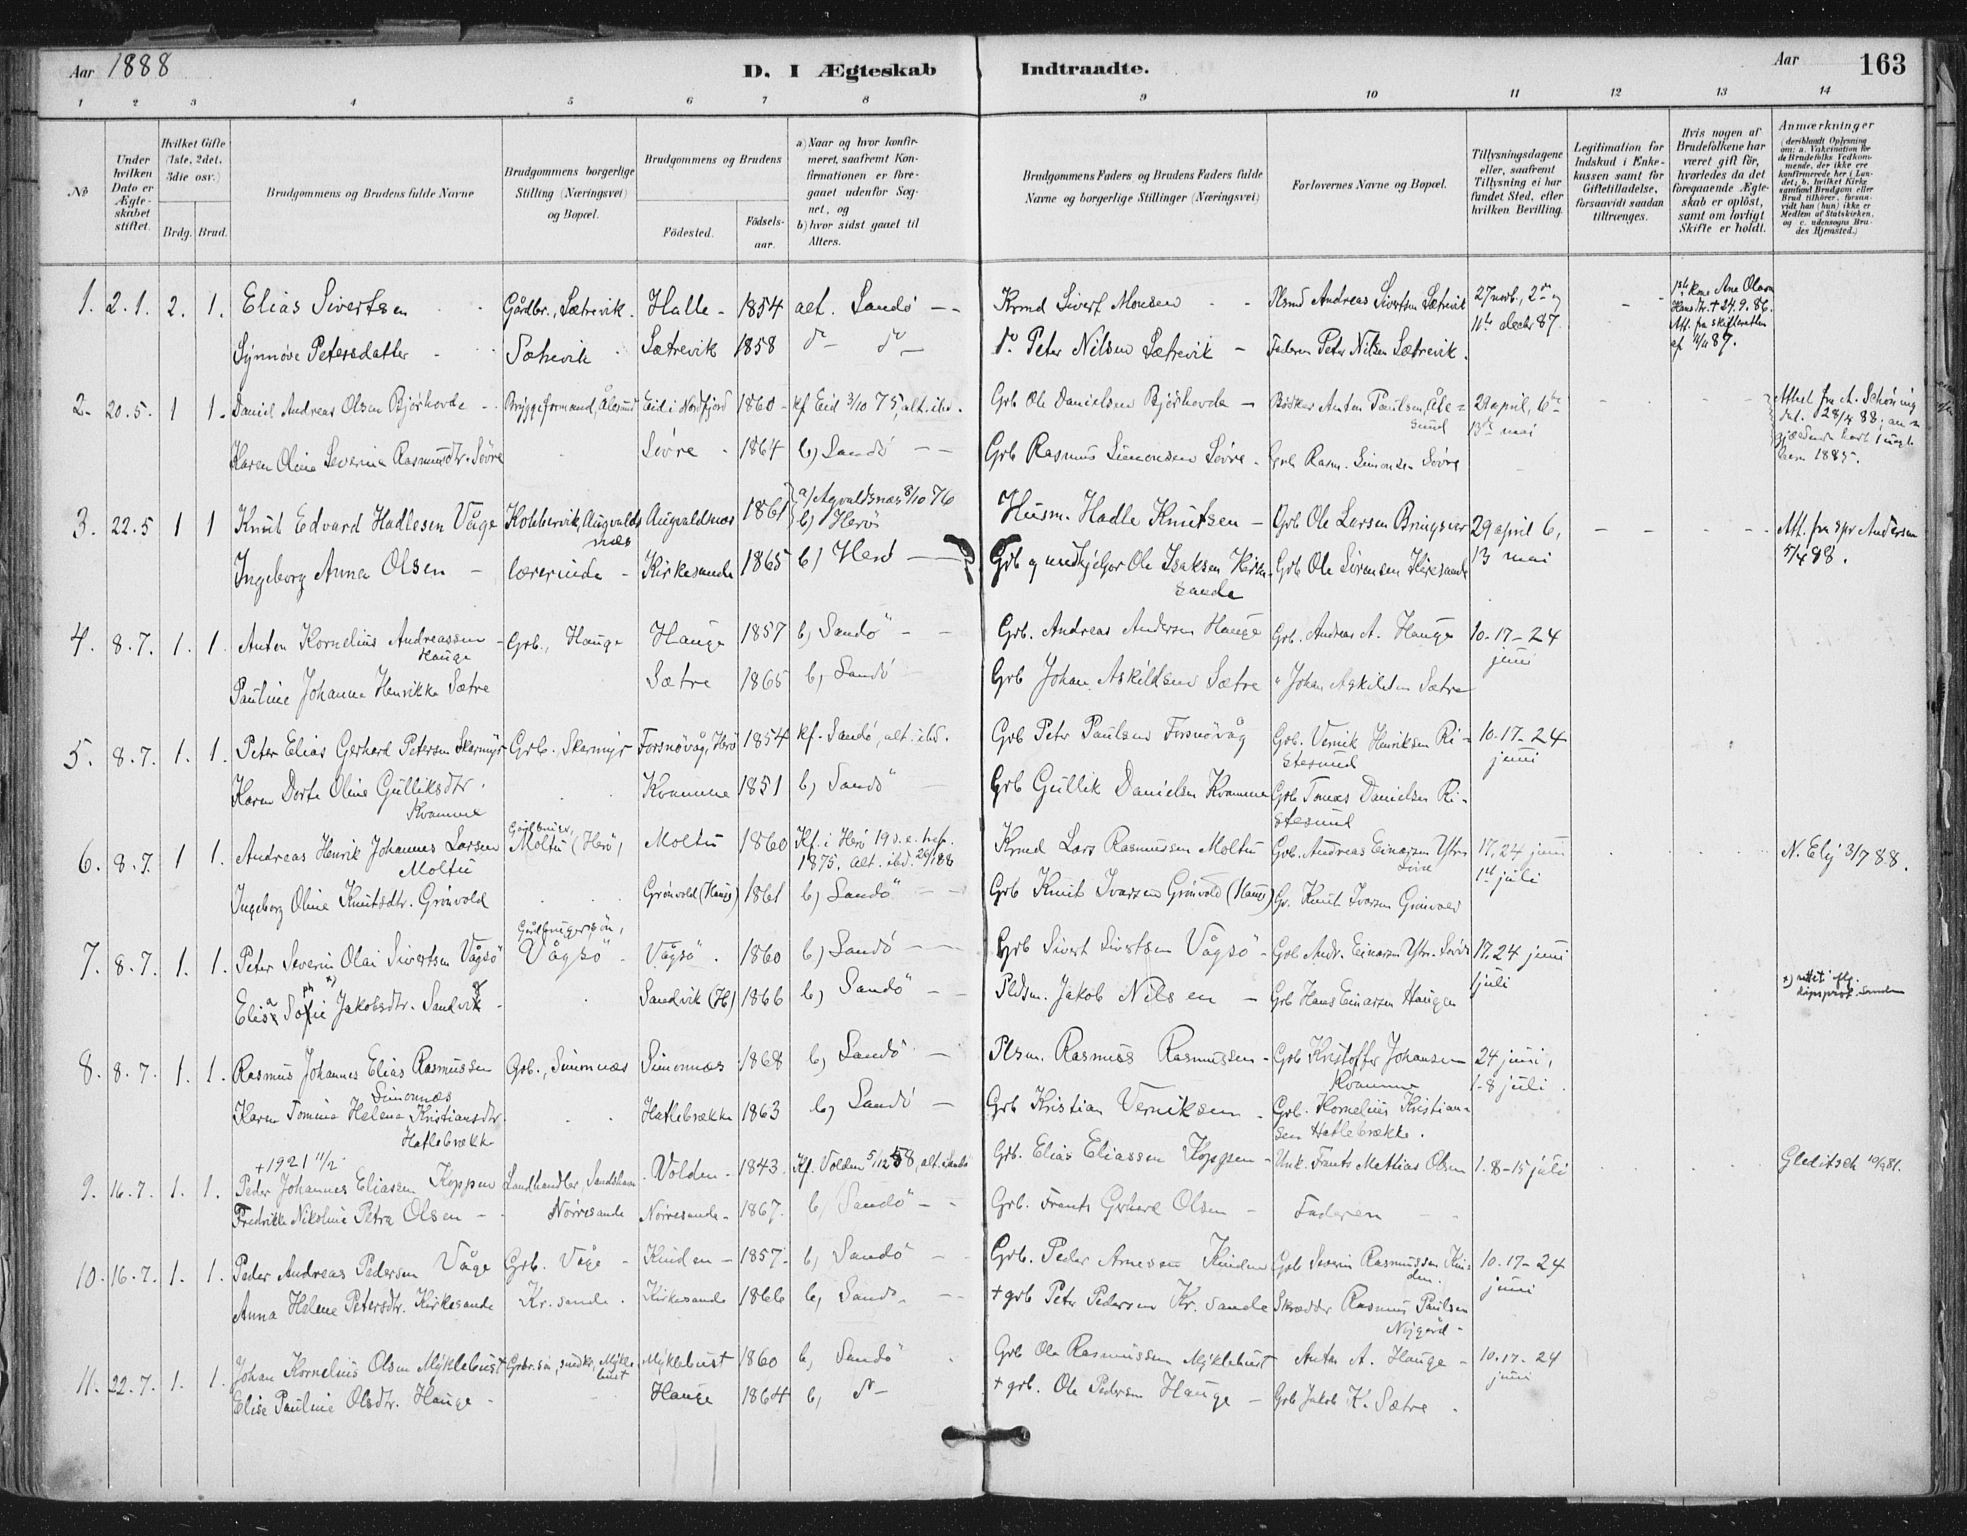 Aar 1888 D. I Ægteskab Indtraadte. Aar 163
1 2 3 4 5 6 7 8 9 10 11 12 13 14
No
Under hvilken Dato er Ægteskabet stiftet.
Hvilket Gifte (1ste, 2det, 3die osv.)
Brdg. Brud.
Brudgommens og Brudens fulde Navne
Brudgommens borgerlige Stilling (Næringsvei) og Bopæl.
Brudgommens og Brudens
Fødested. Fødselsaar.
a) Naar og hvor konfirmeret, saafremt Konfirmationen er foregaaet udenfor Sognet, og
b) hvor sidst gaaet til Alters.
Brudgommens Faders og Brudens Faders fulde Navne og borgerlige Stillinger (Næringsvei)
Forlovernes Navne og Bopæl.
Tillysningsdagene eller, saafremt Tillysning ei har fundet Sted, efter hvilken Bevilling.
Legitimation for Indskud i Enkekassen samt for Giftetilladelse, forsaavidt saadan tiltrænges.
Hvis nogen af Brudefolkene har været gift før, hvorledes da det foregaaende Ægteskab er opløst, samt om lovligt Skifte er holdt.
Anmærkninger (deriblandt Oplysning om: a. Vakcination for de Brudefolks Vedkommende, der ikke ere konfirmerede her i Landet; b. hvilket Kirkesamfund Brudgom eller Brud tilhører, forsaavidt han (hun) ikke er Medlem af Statskirken, og c. udensogns Brudes Hjemsted.)
1. 2.1. 2. 1. Elias Sivertsen Gårdbr., Sætrevik. Halle - 1854 alt. Sandö -- Krmd Sivert Monsen Plsmd Andreas Sivertsen Sætrevik 27 novb., 2den og 11te decbr 87.
1ste kone Ane Olava Hans dtr. † 24.9.86. Att. fra skifteretten af 11/11 87.
Synnöve Petersdatter Sætrevik Sætrevik 1858 do do do Peter Nilsen Sætrevik - Faderen Peter Nilsen Sætrevik.
2. 20.5. 1 1. Daniel Andreas Olsen Bjórhovde Bryggeformand, Ålesund Eid i Nordfjord 1860 - kf Eid 3/10 75, alt. ibd. Grb Ole Danielsen Bjórhovde - Bödker Anton Paulsen, Åle=sund 29 april, 6te 13de mai
Attest fra A. Schöning dat. 28/4 88;
1885.
Karen Oline Severine Rasmusdtr. Sövre Sövre 1864 b) Sandö -- Grb Rasmus Simonsen Sövre. Grb Rasm. Simonsen Sövre
3. 22.5 1 1 Knut Edvard Hadlesen Våge Kobbervik, Augvaldsnæs Augvaldsnæs 1861 a) Agvaldsnæs 8/10 76 b) Herö Husm. Hadle Knutsen - Grb Ole Larsen Bringsvor 29 april 6, 13 mai Att. fra spr Andersen 5/4 88.
Ingeborg Anna Olsen - lærerinde - Kirkesande 1865 b) Herö -- Grb og medhjelper Ole Isaksen Kirkesande Grb Ole Sörensen Kirkesande
4. 8.7. 1. 1. Anton Kornelius Andreassen Hauge - Grb., Hauge Hauge 1857 b) Sandö -- Grb. Andreas Andersen Hauge Grb. Andreas A. Hauge 10.17-24 juni
Pauline Johanne Henrikke Sætre Sætre 1865 b) Sandö Grb Johan Askildsen Sætre " Johan Askildsen Sætre
5. 8.7. 1. 1. Peter Elias Gerhard Petersen Skarmyr Grb., Skarmyr Forsnövåg, Herö 1854 kf. Sandö, alt. ibd. Grb Petr Paulsen Forsnövåg Grb. Vernik Henriksen Ri-stesund 10.17-24 juni
Karen Dorte Oline Gulliksdtr. Kvamme Kvamme 1851 b) Sandö Grb Gullik Danielsen Kvamme Grb Tomas Danielsen Ri-stesund
6. 8.7. 1 1. Andreas Henrik Johannes Larsen Moltu Gårdbruger, Moltu (Herö) Moltu 1860 Kf. i Herö 19 s. e. tref. 1875. alt. ibd. Krmd Lars Rasmussen Moltu Grb. Andreas Einarsen Ytre Sövre 17, 24 juni 1ste juli N. Elg 3/7 88.
Ingeborg Oline Knutsdtr. Grönvold Grönvold (Haug) 1861 b) Sandö -- Grb Knut Ivarsen Grönvold (Haug) Gr. Knut Ivarsen Grönvold
7. 8.7. 1. 1. Peter Severin Olai Sivertsen Vågsö Gårdbrugersön, Vågsö - Vågsö. 1860 b) Sandö -- Grb Sivert Sivertsen Vågsö - Grb Andr. Einarsen Ytre Sövre 17, 24 juni 1 juli
Elisa Sofie Jakobsdtr. Sandvik - Sandvik (H) 1866 b) Sandö -- Pldsm. Jakob Nilsen - Grb Hans Einarsen Haugen x) rettet iflg. dåpsprot. Sanden
8. 8.7. 1. 1. Rasmus Johannes Elias Rasmussen Simonnæs Grb., Simonnæs Simonnæs 1868 b) Sandö - Plsm. Rasmus Rasmussen - Grb Kristoffer Johansen Kvamme 24 juni, 1-8 juli
Karen Tomine Helene Kristiansdtr. Hatlebrække Hatlebrække 1863 b) Sandö - Grb Kristian Verniksen - Grb. Kornelius Kristian-sen Hatlebrække.
+1921 11/2
9. 16.7. 1. 1. Peder Johannes Eliassen Koppen Landhandler, Sandshavn Volden - 1843. Kf. Volden 5/12 58, alt. Sandö Grb. Elias Eliassen Koppen - Unk. Frants Mathias Olsen 1.8-15 juli Gleditsch
Fredrikke Nikoline Petra Olsen -- Nörresande Nörresande - 1867. b) Sandö -- Grb. Frants Gerhard Olsen - Faderen --
10. 16.7. 1. 1. Peder Andreas Pedersen Våge Grb. Våge - Kinden - 1857. b) Sandö - Grb. Peder Arnesen Kinden Grb Severin Rasmussen Kin-den. 10.17-24 juni
Anna Helene Petersdtr. Kirkesande Kr. sande. Kirkesande 1866 b) Sandö -- + grb Peter Pedersen Kr. sande Skrædder Rasmus Paulsen Nygård -
11. 22.7. 1. 1. Johan Kornelius Olsen Myklebust Grbr. sön, snedker, Myklebust Myklebust 1860 b) Sandö Grb Ole Rasmussen Myklebust Anton A. Hauge - 10.17-24 juni
Elise Pauline Olsdtr. Hauge - Hauge 1864 b) " - + grb. Ole Pedersen Hauge - Grb Jakob K. Sætre.